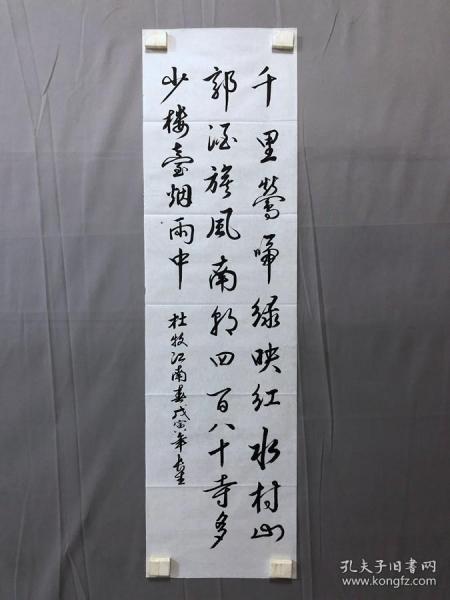 千里莺啼绿映红水村山
郭酒旗风南朝四百八十寺多
少楼臺烟雨中
杜牧江南春戊寅年
孔夫子旧书网
www.kongfz.com